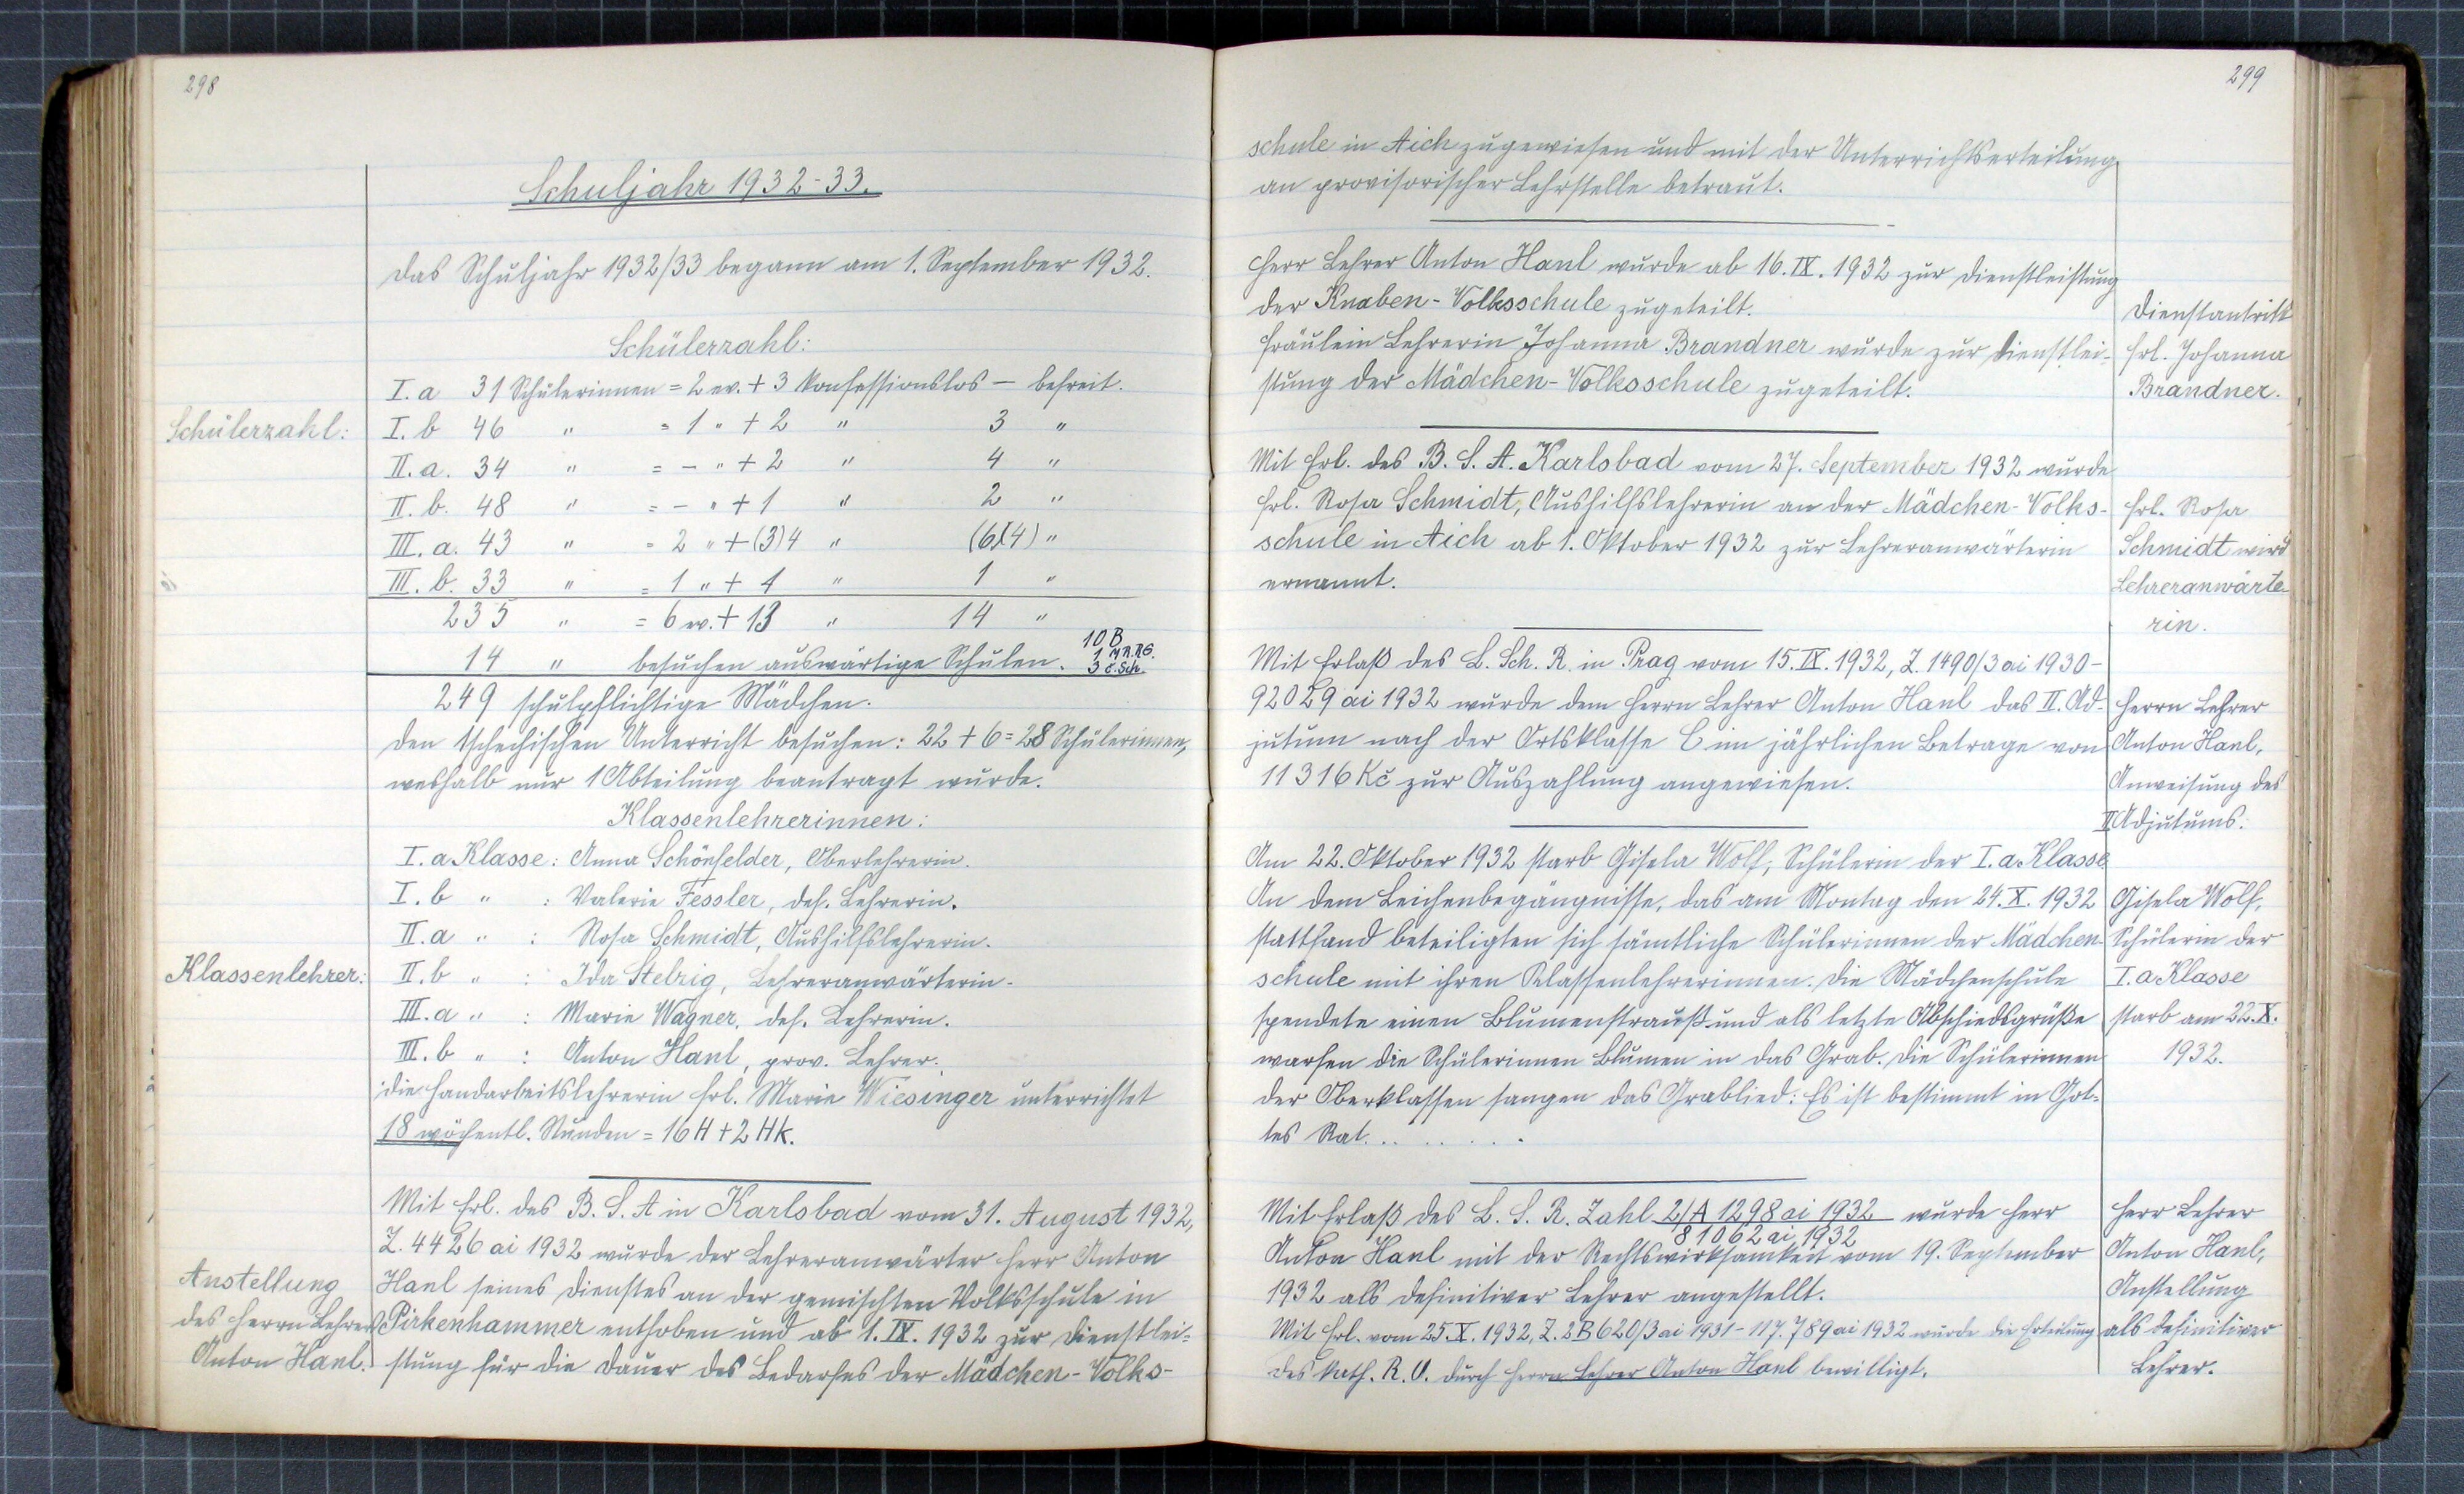 298
Schuljahr 1932-33.
Das Schuljahr 1932/33 begann am 1. September 1932.
Schülerzahl:
Schülerzahl:
I. a 31 Schülerinnen = 2 ev. + 3 konfessionslos — befreit.
I. b 46 " = 1 " + 2 " 3 "
II. a. 34 " = - " + 2 " 4 "
II. b. 48 " = - " + 1 " 2 "
III. a. 43 " = 2 " + (3)4 " (6)(4) "
III. b. 33 " = 1 " + 1 " 1 "
235 " = 6 ev. + 13 " 14 "
14 " besuchen auswärtige Schulen. 10 B
1 M.R.RG.
3 č. Sch.
249 schulpflichtige Mädchen.
Den tschechischen Unterricht besuchen: 22 + 6 = 28 Schülerinnen,
weshalb nur 1 Abteilung beantragt wurde.
Klassenlehrerinnen:
I. a Klasse: Anna Schönfelder, Oberlehrerin.
I. b " : Valerie Fessler, def. Lehrerin.
II. a " : Rosa Schmidt, Aushilfslehrerin.
Klassenlehrer:
II. b " : Ida Stelzig, Lehreranwärterin.
III. a " : Marie Wagner, def. Lehrerin.
III. b " : Anton Hanl, prov. Lehrer.
Die Handarbeitslehrerin Frl. Marie Wiesinger unterrichtet
18 wöchentl. Stunden = 16 H + 2 HK.
Mit Erl. des B. S. A in Karlsbad vom 31. August 1932,
Z. 4426 ai 1932 wurde der Lehreranwärter Herr Anton
Hanl seines Dienstes an der gemischten Volksschule in
Pirkenhammer enthoben und ab 1. IX. 1932 zur Dienstlei-
stung für die Dauer des Bedarfes der Mädchen-Volks-
Anstellung
des Herrn Lehrers
Anton Hanl.
299
schule in Aich zugewiesen und mit der Unterrichtserteilung
an provisorischer Lehrstelle betraut.
Herr Lehrer Anton Hanl wurde ab 16. IX. 1932 zur Dienstleistung
der Knaben-Volksschule zugeteilt.
Fräulein Lehrerin Johanna Brandner wurde zur Dienstlei-
stung der Mädchen-Volksschule zugeteilt.
Dienstantritt
Frl. Johanna
Brandner.
Mit Erl. des B. S. A. Karlsbad vom 27. September 1932 wurde
Frl. Rosa Schmidt, Aushilfslehrerin an der Mädchen-Volks-
schule in Aich ab 1. Oktober 1932 zur Lehreranwärterin
ernannt.
Frl. Rosa
Schmidt wird
Lehreranwärte-
rin.
Mit Erlaß des L. Sch. R. in Prag vom 15. IX. 1932, Z. 1490/3 ai 1930-
92029 ai 1932 wurde dem Herrn Lehrer Anton Hanl das II. Ad-
jutum nach der Ortsklasse C im jährlichen Betrage von
11316 Kč zur Auszahlung angewiesen.
Herrn Lehrer
Anton Hanl,
Anweisung des
II Adjutums.
Am 22. Oktober 1932 starb Gisela Wolf, Schülerin der I. a. Klasse
An dem Leichenbegängnisse, das am Montag den 24. X. 1932
stattfand beteiligten sich sämtliche Schülerinnen der Mädchen-
schule mit ihren Klassenlehrerinnen. Die Mädchenschule
spendete einen Blumenstrauß und als letzte Abschiedsgrüße
warfen die Schülerinnen Blumen in das Grab. Die Schülerinnen
der Oberklassen sangen das Grablied: Es ist bestimmt in Got-
tes Rat. . . . . . . .
Gisela Wolf,
Schülerin der
I. a Klasse
starb am 22. X.
1932.
Mit Erlaß des L. S. R. Zahl 2/A 1298 ai 1932 wurde Herr
81062 ai 1932
Anton Hanl mit der Rechtswirksamkeit vom 19. September
1932 als definitiver Lehrer angestellt.
Mit Erl. vom 25. X. 1932, Z. 2B 620/3 ai 1931-117.789 ai 1932 wurde die Erteilung
des kath. R. U. durch Herrn Lehrer Anton Hanl bewilligt.
Herr Lehrer
Anton Hanl,
Anstellung
als definitiver
Lehrer.